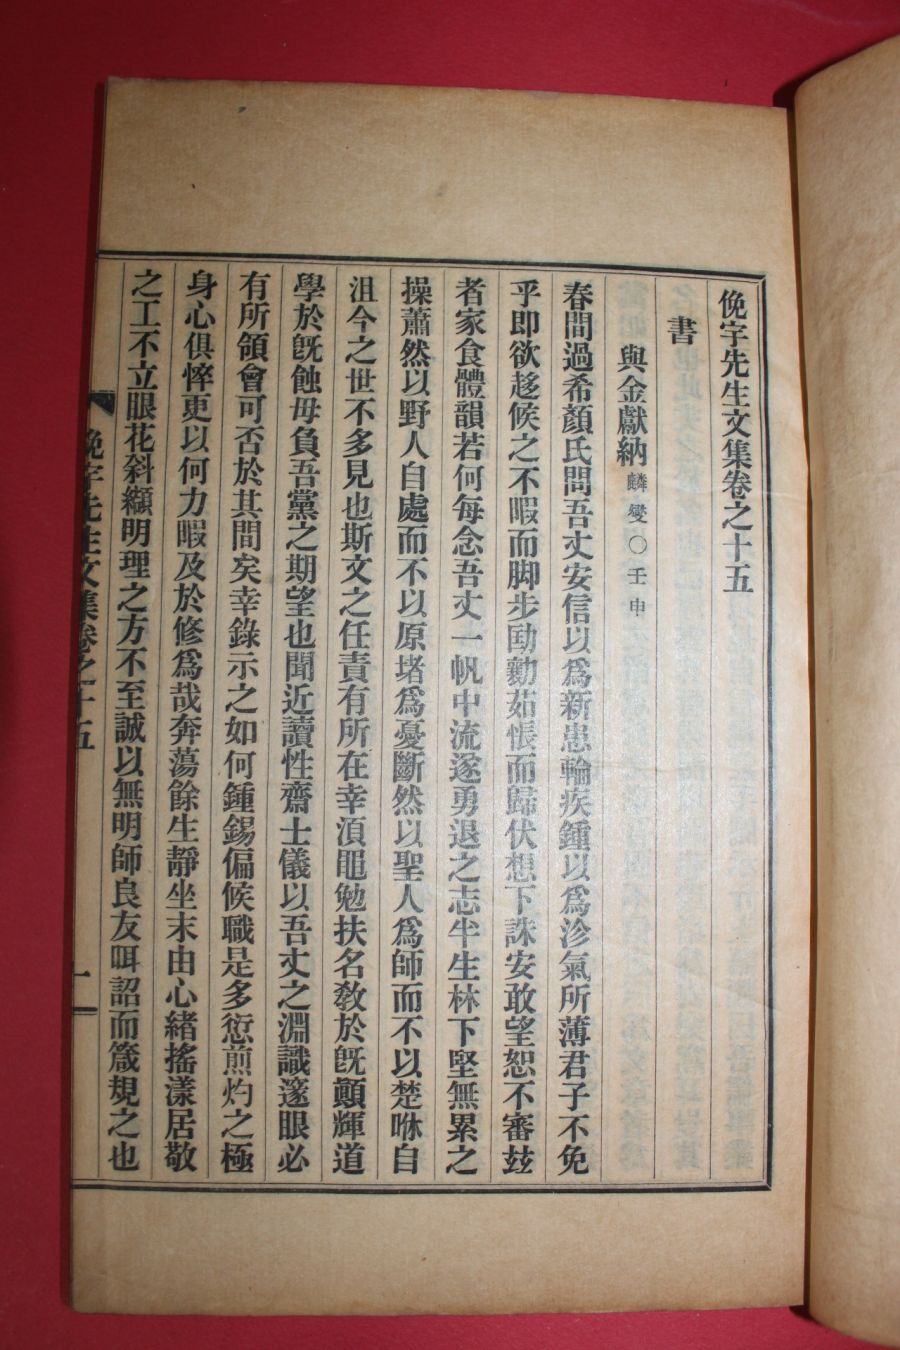 俛宇先生文集卷之十五
書
與金獻納麟燮○壬申
春間過希顏氏問吾丈安信以爲新患輪疾鍾以爲沴氣所薄君子不免
乎即欲趍候之不暇而脚步劻勷茹悵而歸伏想下誅安敢望恕不審玆
者家食體韻若何每念吾丈一帆中流遂勇退之志半生林下堅無累之
操蕭然以野人自處而不以原堵爲憂斷然以聖人爲師而不以楚咻自
沮今之世不多見也斯文之任責有所在幸湏黽勉扶名敎於旣顚輝道
學於旣蝕毋負吾黨之期望也聞近讀性齋士儀以吾丈之淵識邃眼必
有所領會可否於其間矣幸錄示之如何鍾錫偏候職是多愆煎灼之極
身心俱悴更以何力暇及於修爲哉奔蕩餘生靜坐末由心緖搖漾居敬
之工不立眼花斜纈明理之方不至誠以無明師良友咡詔而箴規之也
俛宇先生文集卷之十五
一